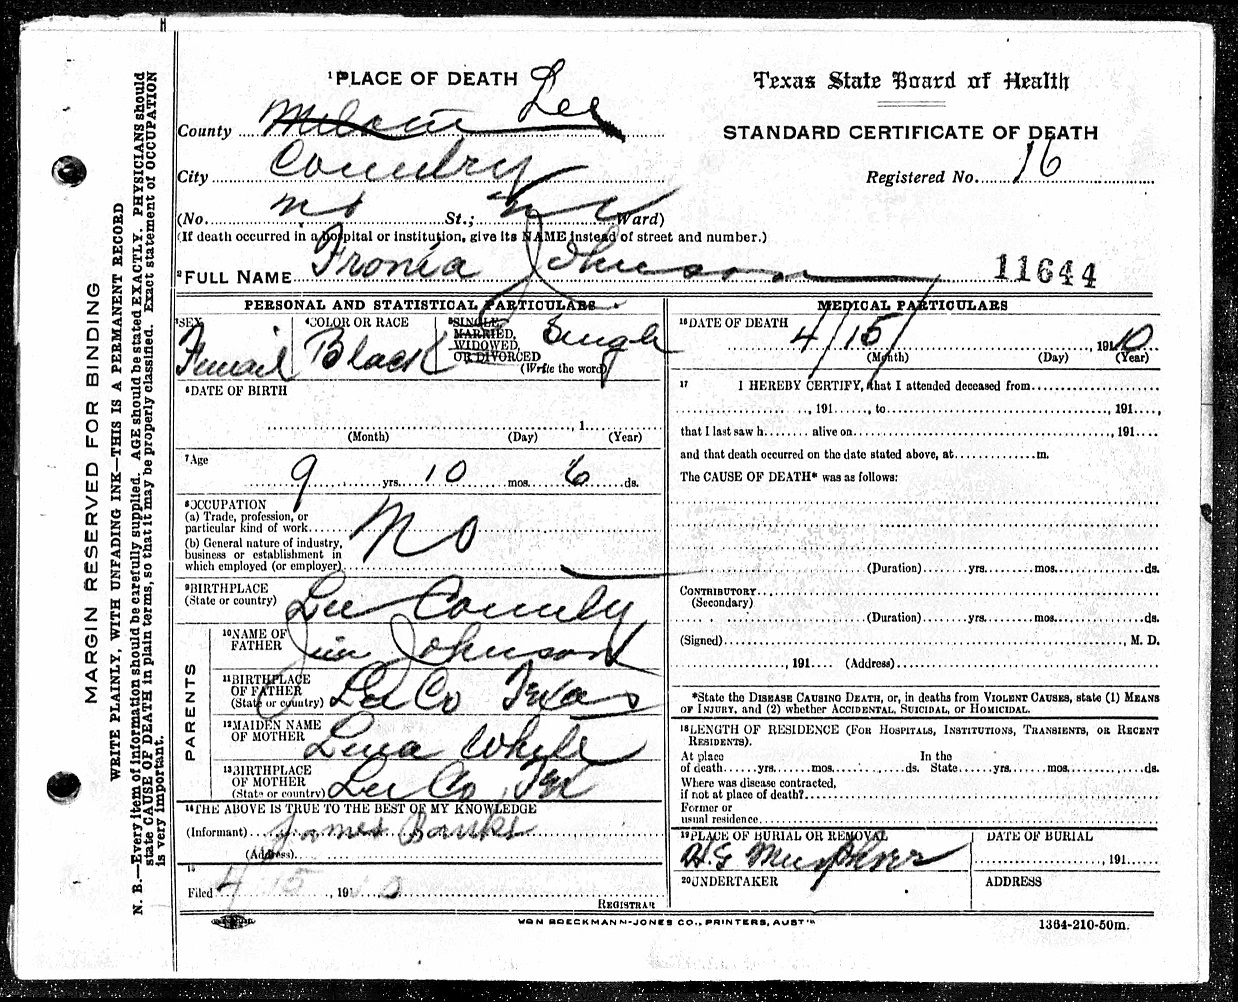 MARGIN RESERVED FOR BINDING
WRITE PLAINLY, WITH UNFADING INK—THIS IS A PERMANENT RECORD
N. B.—Every item of information should be carefully supplied. AGE should be stated EXACTLY. PHYSICIANS should
state CAUSE OF DEATH in plain terms, so that it may be properly classified. Exact statement of OCCUPATION
is very important.
1 PLACE OF DEATH Lee
Texas State Board of Health
County Milam
STANDARD CERTIFICATE OF DEATH
City Country
Registered No. 16
(No. no St.; Ward)
(If death occurred in a hospital or institution, give its NAME instead of street and number.)
2 FULL NAME Fronia Johnson
11644
PERSONAL AND STATISTICAL PARTICULARS
3 SEX
Femail
4 COLOR OR RACE
Black
5 SINGLE,
MARRIED,
WIDOWED,
OR DIVORCED
(Write the word)
Single
6 DATE OF BIRTH
, 1
(Month) (Day) (Year)
7 Age
9 yrs. 10 mos. 6 ds.
8 OCCUPATION
(a) Trade, profession, or
particular kind of work
(b) General nature of industry,
business or establishment in
which employed (or employer)
No
9 BIRTHPLACE
(State or country) Lee County
PARENTS
10 NAME OF
FATHER Jim Johnson
11 BIRTHPLACE
OF FATHER
(State or country) Lee Co Texas
12 MAIDEN NAME
OF MOTHER Lena White
13 BIRTHPLACE
OF MOTHER
(State or country) Lee Co Tex
14 THE ABOVE IS TRUE TO THE BEST OF MY KNOWLEDGE
(Informant) James Banks
(Address)
15
Filed 4 15, 191 0
REGISTRAR
MEDICAL PARTICULARS
16 DATE OF DEATH
4/15/ , 1910
(Month) (Day) (Year)
17 I HEREBY CERTIFY, that I attended deceased from
, 191 , to , 191 ,
that I last saw h alive on , 191
and that death occurred on the date stated above, at m.
The CAUSE OF DEATH* was as follows:
(Duration) yrs. mos. ds.
CONTRIBUTORY
(Secondary)
(Duration) yrs. mos. ds.
(Signed) , M. D.
, 191 (Address)
*State the DISEASE CAUSING DEATH, or, in deaths from VIOLENT CAUSES, state (1) MEANS
OF INJURY, and (2) whether ACCIDENTAL, SUICIDAL, or HOMICIDAL.
18 LENGTH OF RESIDENCE (FOR HOSPITALS, INSTITUTIONS, TRANSIENTS, OR RECENT
RESIDENTS).
At place In the
of death yrs. mos. ds. State yrs. mos. ds.
Where was disease contracted,
if not at place of death?
Former or
usual residence
19 PLACE OF BURIAL OR REMOVAL
DATE OF BURIAL
, 191
20 UNDERTAKER
ADDRESS
VON BOECKMANN-JONES CO., PRINTERS, AUSTIN
1364-210-50m.